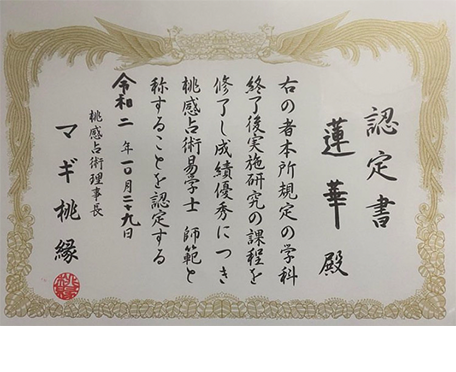 認定書
蓮華殿
右の者本所規定の学科
終了後実施研究の課程を
修了し成績優秀につき
桃感占術易学士 師範と
称することを認定する
令和二年一〇月二九日
桃感占術理事長
マギ桃縁